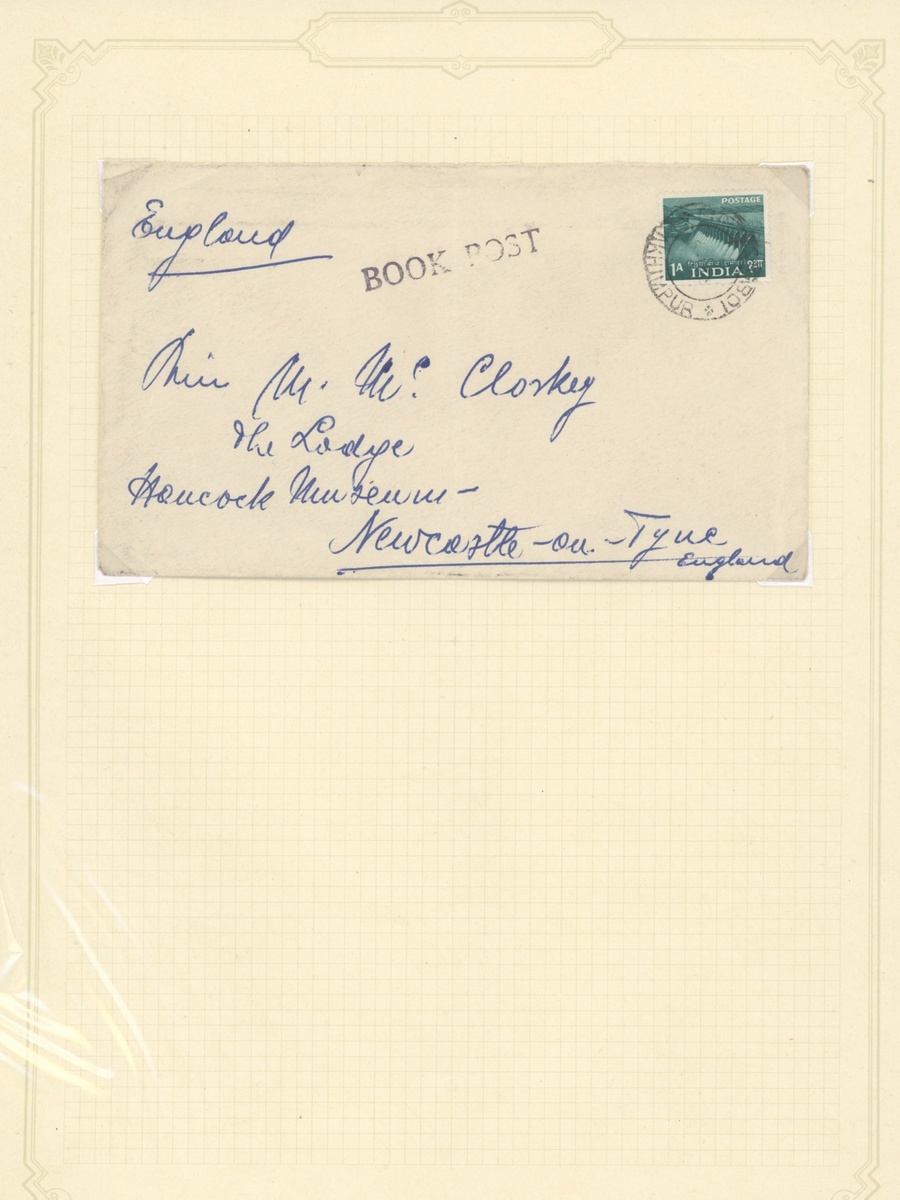 England
BOOK POST
POSTAGE
1A INDIA
Miss M. Mc. Closkey
The Lodge
Hancock Museum-
Newcastle-on-Tyne
England